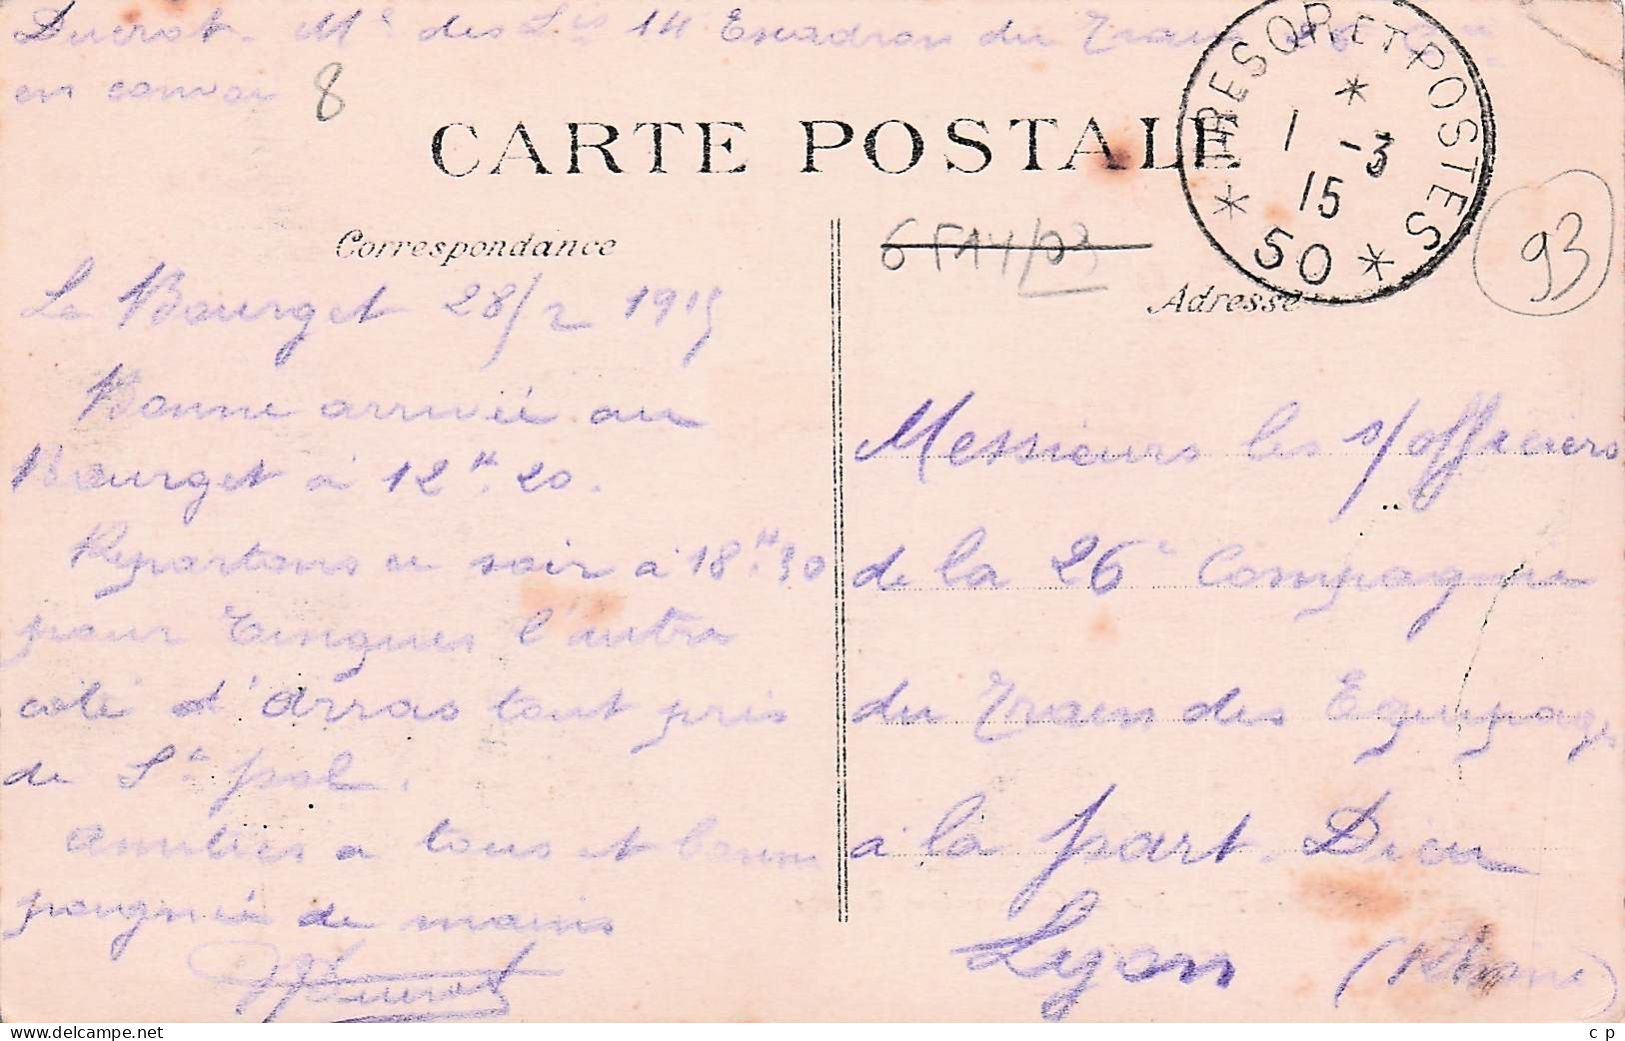 Ducrot. Mal des Lis 14 Escadron du Train
en convoi 8
CARTE POSTALE
TRESOR ET POSTES
1 -3
15
* 50 *
93
Correspondance
Adresse
Le Bourget 28/2 1915
Bonne arrivée au
Bourget à 12H.20.
Repartons ce soir à 18H.30
pour Tinques l'autre
coté d'Arras tout près
de St pol.
Amitiés a tous et bonne
poignée de mains
Ducrot
Messieurs les s/officiers
de la 26e Compagnie
du Train des Equipages
a la part-Dieu
Lyon (Rhone)
c p